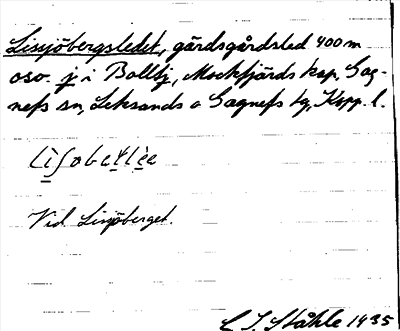 Lissjöbergsledet, gärdsgårdsled 400 m
oso. j i Bollbj, Mockfjärds ksp, Gag-
nefs sn, Leksands o Gagnefs tg, Kopp. l.
Vid Lissjöberget.
C I Ståhle 1935